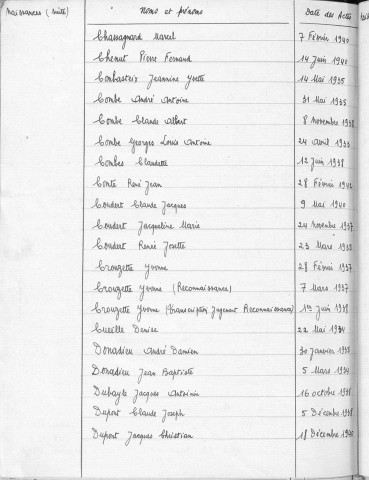 Naissances (suite) Noms et prénoms Date des Actes
Chassagnard Marcel 7 Février 1940
Chenut Pierre Fernand 14 Juin 1940
Combasteix Jeannine Yvette 14 Mai 1935
Combe André Antoine 31 Mai 1935
Combe Claude Albert 8 novembre 1938
Combe Georges Louis Antoine 24 Avril 1933
Combes Claudette 12 Juin 1938
Conte René Jean 28 Février 1942
Coudert Claude Jacques 9 Mai 1940
Coudert Jacqueline Marie 24 novembre 1937
Coudert Renée Josette 23 Mars 1933
Crouzette Yvonne 28 Février 1937
Crouzette Yvonne (Reconnaissance) 7 Mars 1937
Crouzette Yvonne (transcription Jugement Reconnaissance) 1er Juin 1938
Cueille Denise 22 Mai 1934
Donadieu André Damien 30 Janvier 1935
Donadieu Jean Baptiste 5 Mars 1934
Dubayle Jacques Antoinin 16 octobre 1938
Dupont Claude Joseph 5 Décembre 1938
Dupont Jacques Christian 18 Décembre 1940